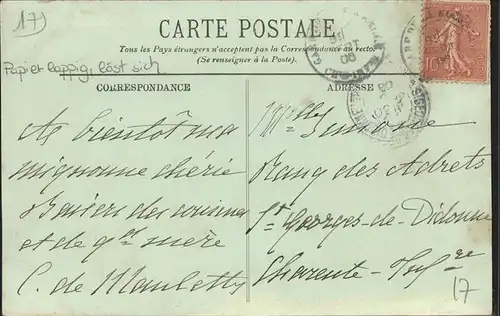 17)
CARTE POSTALE
Tous les Pays étrangers n'acceptent pas la Correspondance au recto
(Se renseigner à la Poste).
Papier lappig, löst sich
CORRESPONDANCE
ADRESSE
A bientôt ma
mignonne chérie
Baisers des cousines
et de gd mère
C. de
Melle Simone
Rang des Adrets
St Georges-de-Didonne
Charente-Infre
10
17